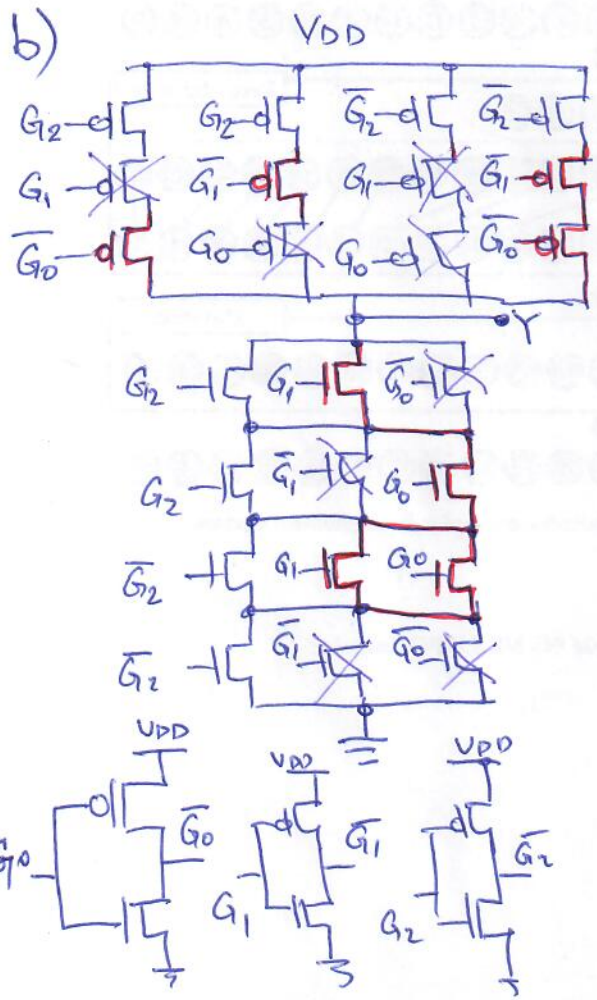 b)
VDD
G2 G2 G̅2 G̅2
G1 G̅1 G1 G̅1
G̅0 G0 G0 G̅0
Y
G2 G1 G̅0
G2 G̅1 G0
G̅2 G1 G0
G̅2 G̅1 G̅0
VDD VDD VDD
G0 G̅0 G1 G̅1 G2 G̅2